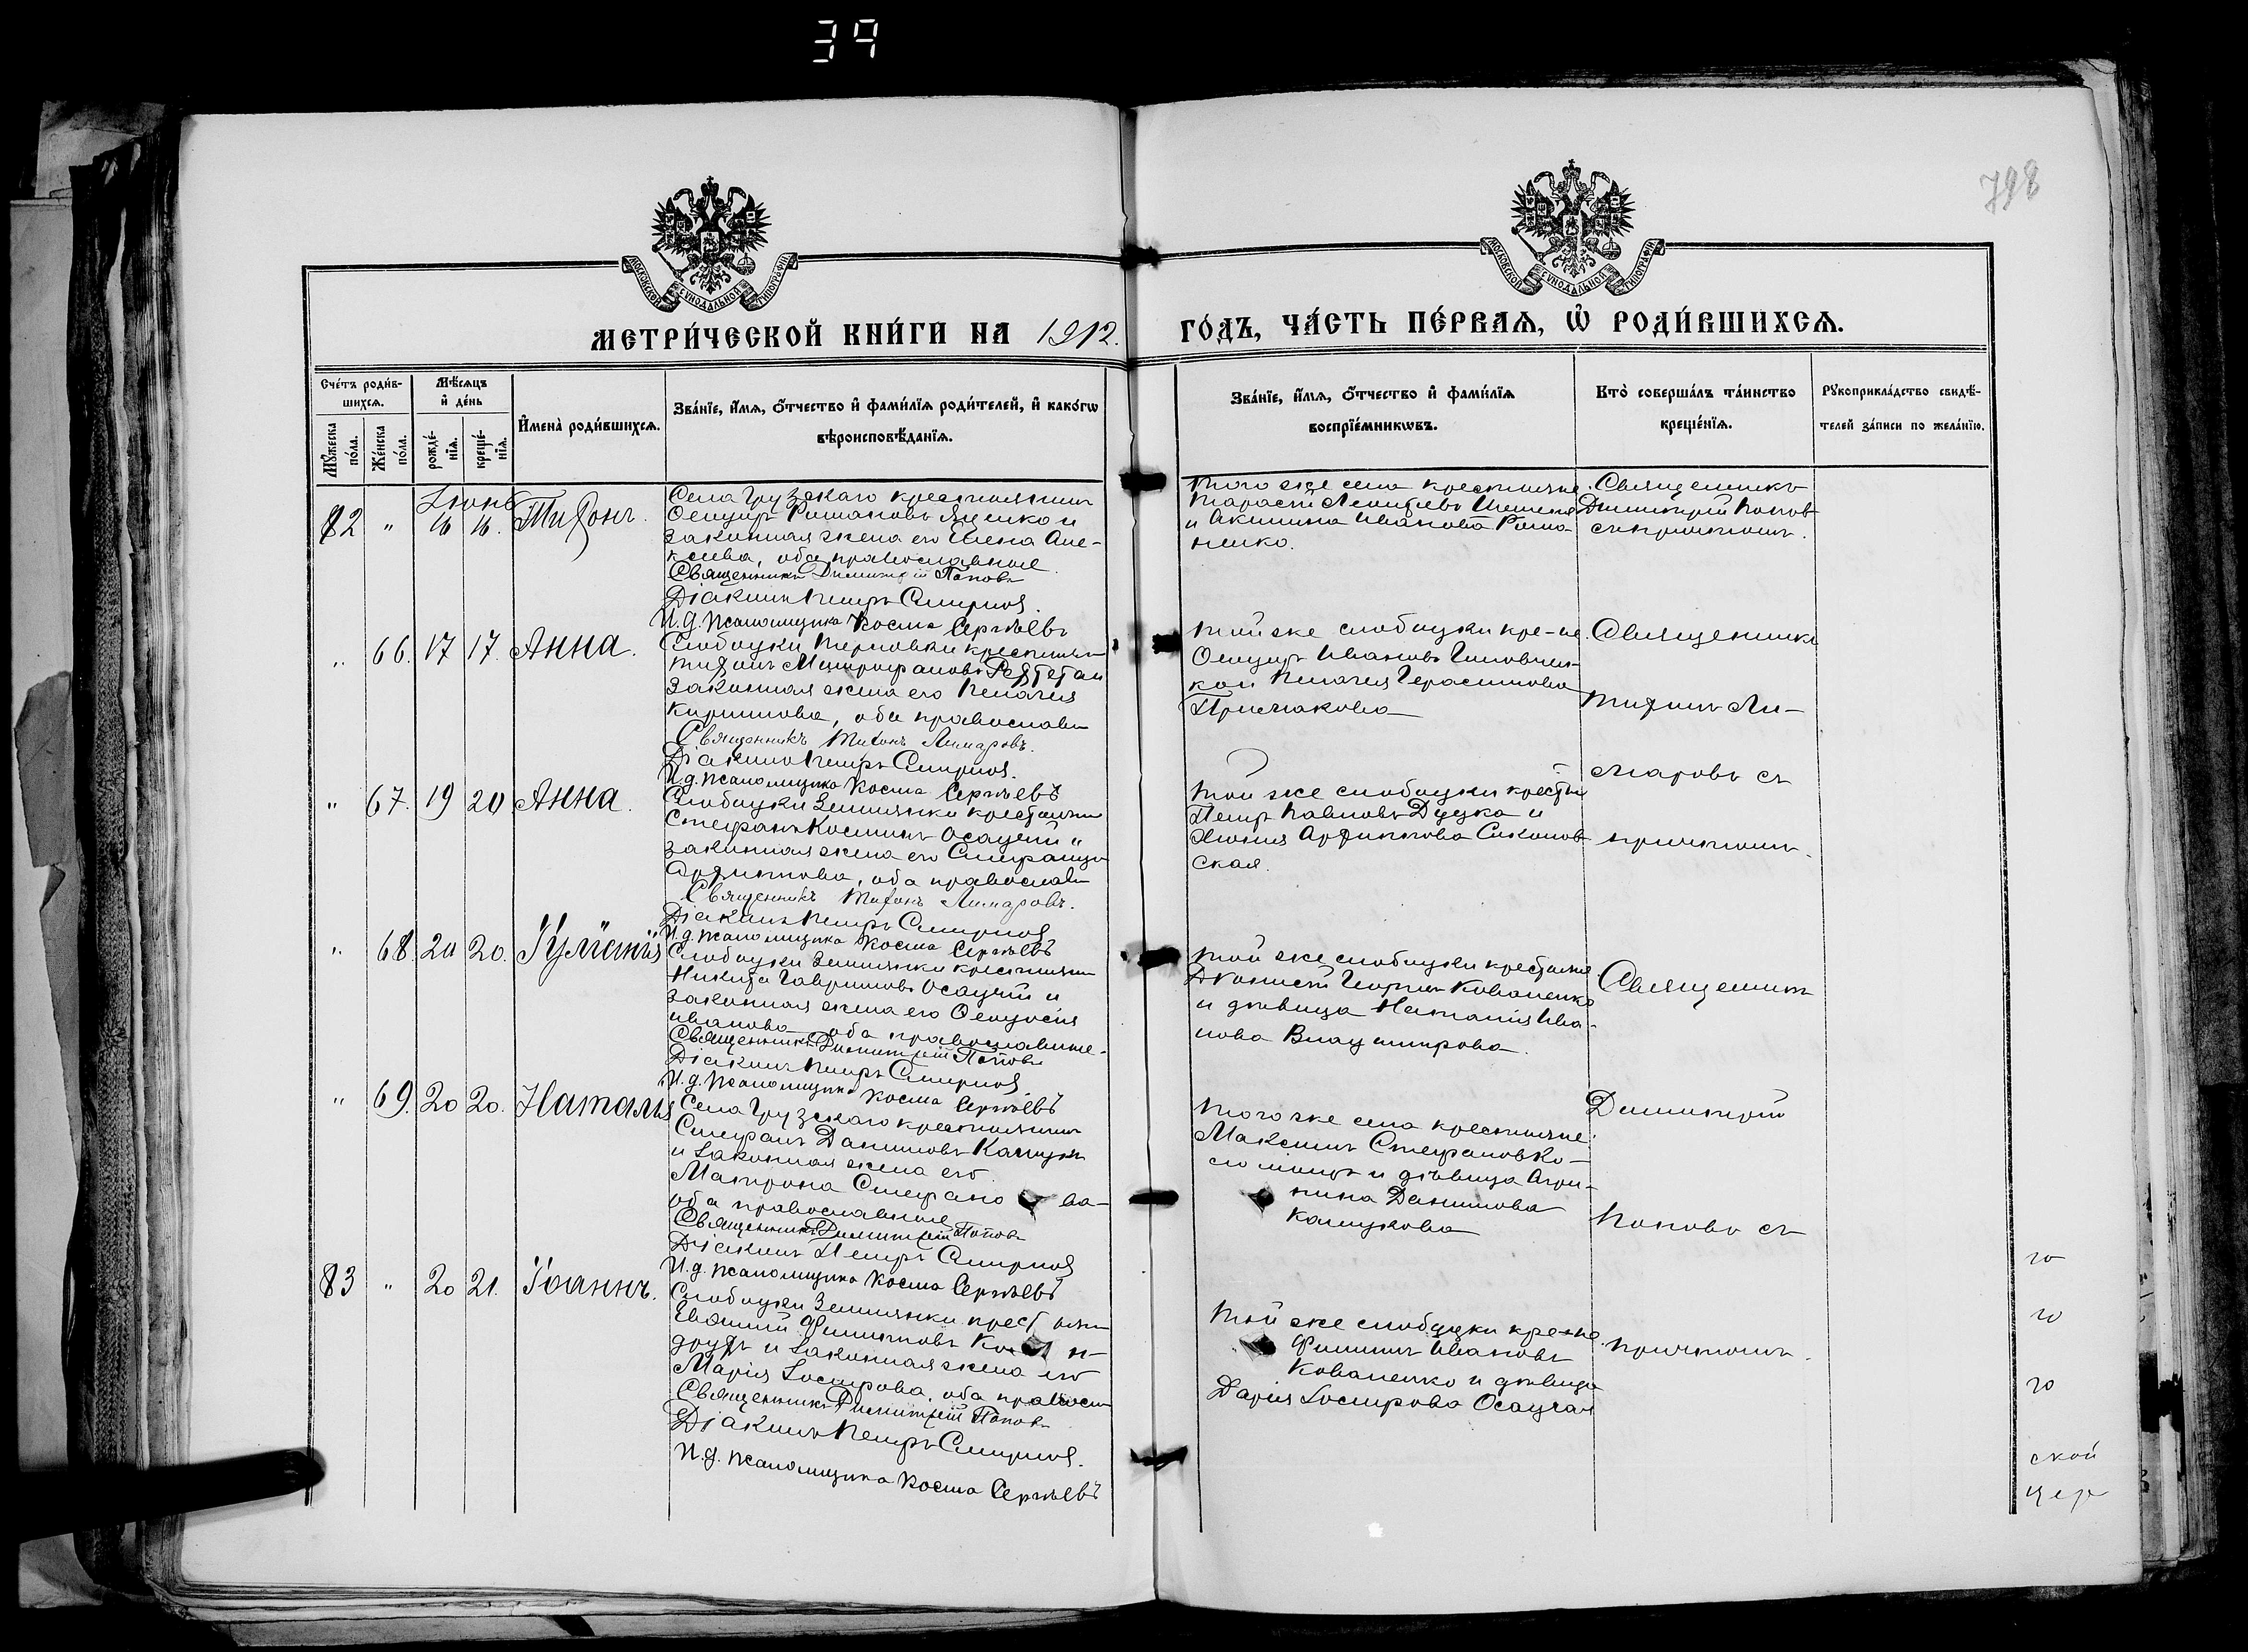 39
798
МОСКОВСКОЙ СУНОДАЛЬНОЙ ТИПОГРАФІИ
МОСКОВСКОЙ СУНОДАЛЬНОЙ ТИПОГРАФІИ
МЕТРИ́ЧЕСКОЙ КНИ́ГИ НА 1912. ГО́ДЪ, ЧА́СТЬ ПЕ́РВАЯ, Ѡ҆ РОДИ́ВШИХСЯ.
Сче́тъ роди́в-
шихся.
Мꙋ́жеска по́ла.
Же́нска по́ла.
Мѣ́сяцъ
и҆ де́нь
рожде́-
нїя.
креще́-
нїя.
И҆мена̀ роди́вшихся.
Зва́нїе, и҆́мя, ѻ҆́тчество и҆ фами́лїя роди́телей, и҆ како́гѡ
вѣроисповѣ́данїя.
Зва́нїе, и҆́мя, ѻ҆́тчество и҆ фами́лїя
воспрїе́мникѡвъ.
Кто̀ соверша́лъ та́инство
креще́нїя.
Рꙋкоприкла́дство свидѣ́-
телей за́писи по жела́нїю.
82 " Іюнь 16 16. Тихонъ.
Села Грузскаго крестьянинъ
Романовъ Яценко и
законная жена его Елена Але-
ксѣева, оба православные
Священникъ Димитрій Поповъ
Діаконъ Петръ Смирновъ.
И.д. псаломщика Косма Сергѣевъ
Того же села крестьяне
Тарасій
и Акилина Иванова Рома-
ненко.
Священникъ
Димитрій Поповъ
съ причтомъ.
" 66. 17 17. Анна.
Слободки крестьян
Тихонъ Митрофановъ
законная жена его Пелагія
Кириллова, оба православн
Священникъ Тихонъ Лимаровъ.
Діаконъ Петръ Смирновъ.
И.д. псаломщика Косма Сергѣевъ
Той же слободки кре-не
Ивановъ
Пелагія Герасимова
Священникъ
Тихонъ Ли-
маровъ съ
причтомъ.
" 67. 19 20 Анна.
Слободки Землянки крестьянин
Стефанъ Косминъ Осадчій и
законная жена его Стефанида
оба православн
Священникъ Тихонъ Лимаровъ.
Діаконъ Петръ Смирновъ
И.д. псаломщика Косма Сергѣевъ
Той же слободки крестьян
Петръ Павловъ Дудка и
ская.
" 68. 20 20. Іуліанія
Слободки Землянки крестьянин
Никита Гавриловъ Осадчій и
законная жена его Ѳеодосія
Иванова оба православные.
Священникъ Димитрій Поповъ
Діаконъ Петръ Смирновъ
И.д. псаломщика Косма Сергѣевъ
Той же слободки крестьяне
Діонисій Коваленко
и дѣвица Наталія Ива-
нова Владимірова.
Священникъ
" 69. 20 20. Наталія
Села Грузскаго крестьянинъ
Стефанъ Даниловъ
и законная жена его
Матрона Стефано ва-
оба православные
Священникъ Димитрій Поповъ
Діаконъ Петръ Смирновъ
И.д. псаломщика Косма Сергѣевъ
Того же села крестьяне
Максимъ Стефановъ Ко-
и дѣвица Агри-
пина Данилова
Димитрій
Поповъ съ
83 " 20 21. Іоаннъ.
Слободки Землянки крест
Евѳимій Филипповъ
и законная жена его
Марія оба правосл
Священникъ Димитрій Поповъ
Діаконъ Петръ Смирновъ.
И.д. псаломщика Косма Сергѣевъ
Той же слободки кре-не
Филиппъ Ивановъ
Коваленко и дѣвица
Дарія Осадчая
причтомъ.
го
го
го
ской
цер